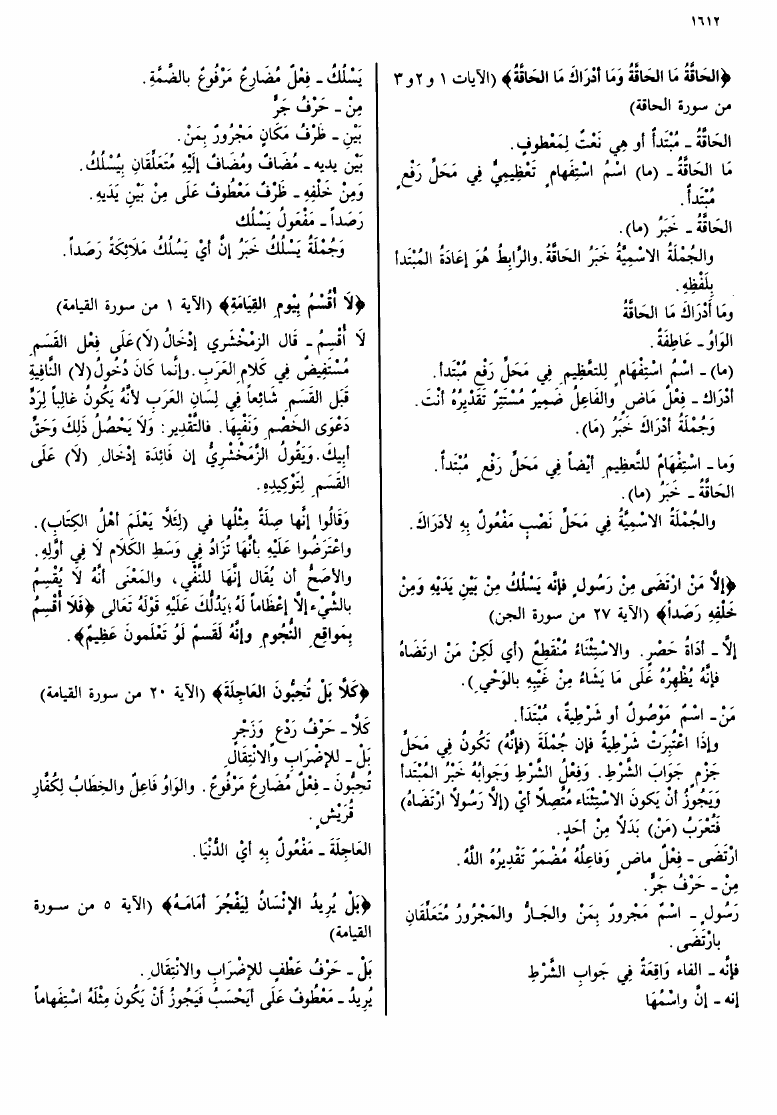 ١٦١٢
﴿الحَاقَّةُ مَا الحَاقَّةُ وَمَا أَدْرَاكَ مَا الحَاقَّةُ﴾ (الآيات ١ و٢ و٣
من سورة الحاقة)
الحَاقَّةُ ـ مُبْتَدأٌ أو هِي نَعْتٌ لِمَعْطوفٍ.
مَا الحَاقَّةُ ـ (ما) اسْمُ اسْتِفْهامٍ تَعْظِيمِيٌّ فِي مَحَلِّ رَفْعٍ
مُبْتَدأ.
الحَاقَّةُ ـ خَبَرُ (ما).
والجُمْلَةُ الاسْمِيَّةُ خَبَرُ الحَاقَّةُ. والرَّابِطُ هُوَ إعَادَةُ المُبْتَدأ
بِلَفْظِهِ.
وَمَا أَدْرَاكَ مَا الحَاقَّةُ
الوَاوُ ـ عَاطِفَةٌ.
(ما) ـ اسْمُ اسْتِفْهَامٍ لِلتَّعْظِيمِ فِي مَحَلِّ رَفْعِ مُبْتَدأ.
أَدْرَاكَ ـ فِعْلٌ مَاضٍ والفَاعِلُ ضَمِيرٌ مُسْتَتِرٌ تَقْدِيرُهُ أَنْتَ.
وَجُمْلَةُ أَدْرَاكَ خَبَرُ (مَا).
وَما ـ اسْتِفْهَامٌ لِلتَّعْظِيمِ أيْضاً فِي مَحَلِّ رَفْعٍ مُبْتَدأ.
الحَاقَّةُ ـ خَبَرُ (ما).
والجُمْلَةُ الاسْمِيَّةُ فِي مَحَلِّ نَصْبٍ مَفْعُولٌ بِهِ لأَدْرَاكَ.
﴿إِلَّا مَنْ ارْتَضَى مِنْ رَسُولٍ فإنَّه يَسْلُكُ مِنْ بَيْنِ يَدَيْهِ وَمِنْ
خَلْفِهِ رَصَداً﴾ (الآية ٢٧ من سورة الجن)
إلَّا ـ أدَاةُ حَصْرٍ. والاسْتِثْنَاءُ مُنْقَطِعٌ (أي لَكِنْ مَنْ ارتَضَاهُ
فإنَّهُ يُظْهِرُهُ عَلَى مَا يَشَاءُ مِنْ غَيْبِهِ بالوَحْيِ).
مَنْ ـ اسْمٌ مَوْصُولٌ أو شَرْطِيةٌ، مُبْتَدَأ.
وإذَا اعْتُبِرَتْ شَرْطِيةً فإن جُمْلَةَ (فإنَّهُ) تَكُونُ فِي مَحَلِّ
جَزْمٍ جَوَابَ الشَّرْطِ. وَفِعْلُ الشَّرْطِ وَجَوابُهُ خَبَرُ المُبْتَدأ
وَيَجُوزُ أَنْ يَكُونَ الاسْتِثْنَاء مُتَّصِلاً أيْ (إلَّا رَسُولاً ارْتَضَاهُ)
فَتُعْرَبُ (مَنْ) بَدَلاً مِنْ أحَدٍ.
ارْتَضَى ـ فِعْلٌ ماضٍ وَفاعِلُهُ مُضْمَرٌ تَقْدِيرُهُ اللَّهُ.
مِنْ ـ حَرْفُ جَرٍّ.
رَسُولٍ ـ اسْمٌ مَجْرورٌ بِمَنْ والجَارُ والمَجْرُورُ مُتَعَلِّقَانِ
بارْتَضَى.
فإنَّه ـ الفاء وَاقِعَةٌ فِي جَوابِ الشَّرْطِ
إنه ـ إنَّ واسْمُهَا
يَسْلُكُ ـ فِعْلٌ مُضَارِعٌ مَرْفُوعٌ بالضَّمَّةِ.
مِنْ ـ حَرْفُ جَرٍّ
بَيْنِ ـ ظَرْفُ مَكَانٍ مَجْرورٌ بِمَنْ.
بَيْنِ يديه ـ مُضَافٌ ومُضَافٌ إلَيْهِ مُتَعَلِّقَانِ بِيَسْلُكُ.
وَمِنْ خَلْفِهِ ـ ظَرْفٌ مَعْطُوفٌ عَلَى مِنْ بَيْنِ يَدَيهِ.
رَصَداً ـ مَفْعُولُ يَسْلُك
وَجُمْلَةُ يَسْلُكُ خَبَرُ إنَّ أيْ يَسْلُكُ مَلَائِكَةً رَصَداً.
﴿لَا أُقْسِمُ بِيْومِ القِيَامَةِ﴾ (الآية ١ من سورة القيامة)
لَا أُقْسِمُ ـ قال الزَمْخشَري إدْخَالُ (لَا) عَلَى فِعْلِ القَسَمِ
مُسْتَفِيضٌ فِي كَلَامِ العَرَبِ. وإنَّما كَانَ دُخُولُ (لا) النَّافِيةِ
قَبْلَ القَسَمِ شَائِعاً فِي لِسَانِ العَرَبِ لأنَّهُ يَكُونُ غالِباً لِرَدِّ
دَعْوَى الخَصْمِ وَنَفْيِهَا. فالتَّقْدِير: وَلَا يَحْصُلُ ذَلِكَ وَحَقِّ
أبيكَ. وَيَقُولُ الزَّمْخْشَرِيُّ إن فَائِدَة إدْخَالِ (لَا) عَلَى
القَسَمِ لِتَوْكِيدِهِ.
وَقَالُوا إنَّها صِلَةٌ مِثْلُها في (لِئَلَّا يَعْلَمَ أهْلُ الكِتَابِ).
واعْتَرَضُوا عَلَيْهِ بأنَّهَا تُزَادُ فِي وَسَطِ الكَلَامِ لَا فِي أوَّلِهِ.
والأصَحُّ أن يُقَال إنَّهَا لِلنَّفْي، والمَعْنَى أنَّهُ لَا يُقْسِمُ
بالشَّيْء إلَّا إعْظَاماً لَهُ؛ يَدُلُّكَ عَلَيْهِ قَوْلُهُ تَعَالَى ﴿فَلَا أُقْسِمُ
بِمَواقِعِ النُّجُومِ وإنَّهُ لَقَسَمٌ لَوْ تَعْلَمونَ عَظِيمٌ﴾.
﴿كَلَّا بَلْ تُحِبُّونَ العَاجِلَةَ﴾ (الآية ٢٠ من سورة القيامة)
كَلَّا ـ حَرْفُ رَدْعٍ وَزَجْرٍ
بَلْ ـ لِلإضْرَابِ والانْتِقَالِ
تُحِبُّونَ ـ فِعْلٌ مُضَارعٌ مَرْفُوعٌ. والوَاوُ فَاعِلٌ والخِطَابُ لِكُفَّارِ
قُرَيْشٍ.
العَاجِلَةَ ـ مَفْعُولٌ بِهِ أيْ الدُّنْيَا.
﴿بَلْ يُرِيدُ الإنْسَانُ لِيَفْجُرَ أمَامَهُ﴾ (الآية ٥ من سورة
القيامة)
بَلْ ـ حَرْفُ عَطْفٍ للإضْرَابِ والانْتِقَالِ.
يُرِيدُ ـ مَعْطُوفٌ عَلَى أيَحْسَبُ فَيَجُوزُ أَنْ يَكُونَ مِثْلَهُ اسْتِفْهاماً